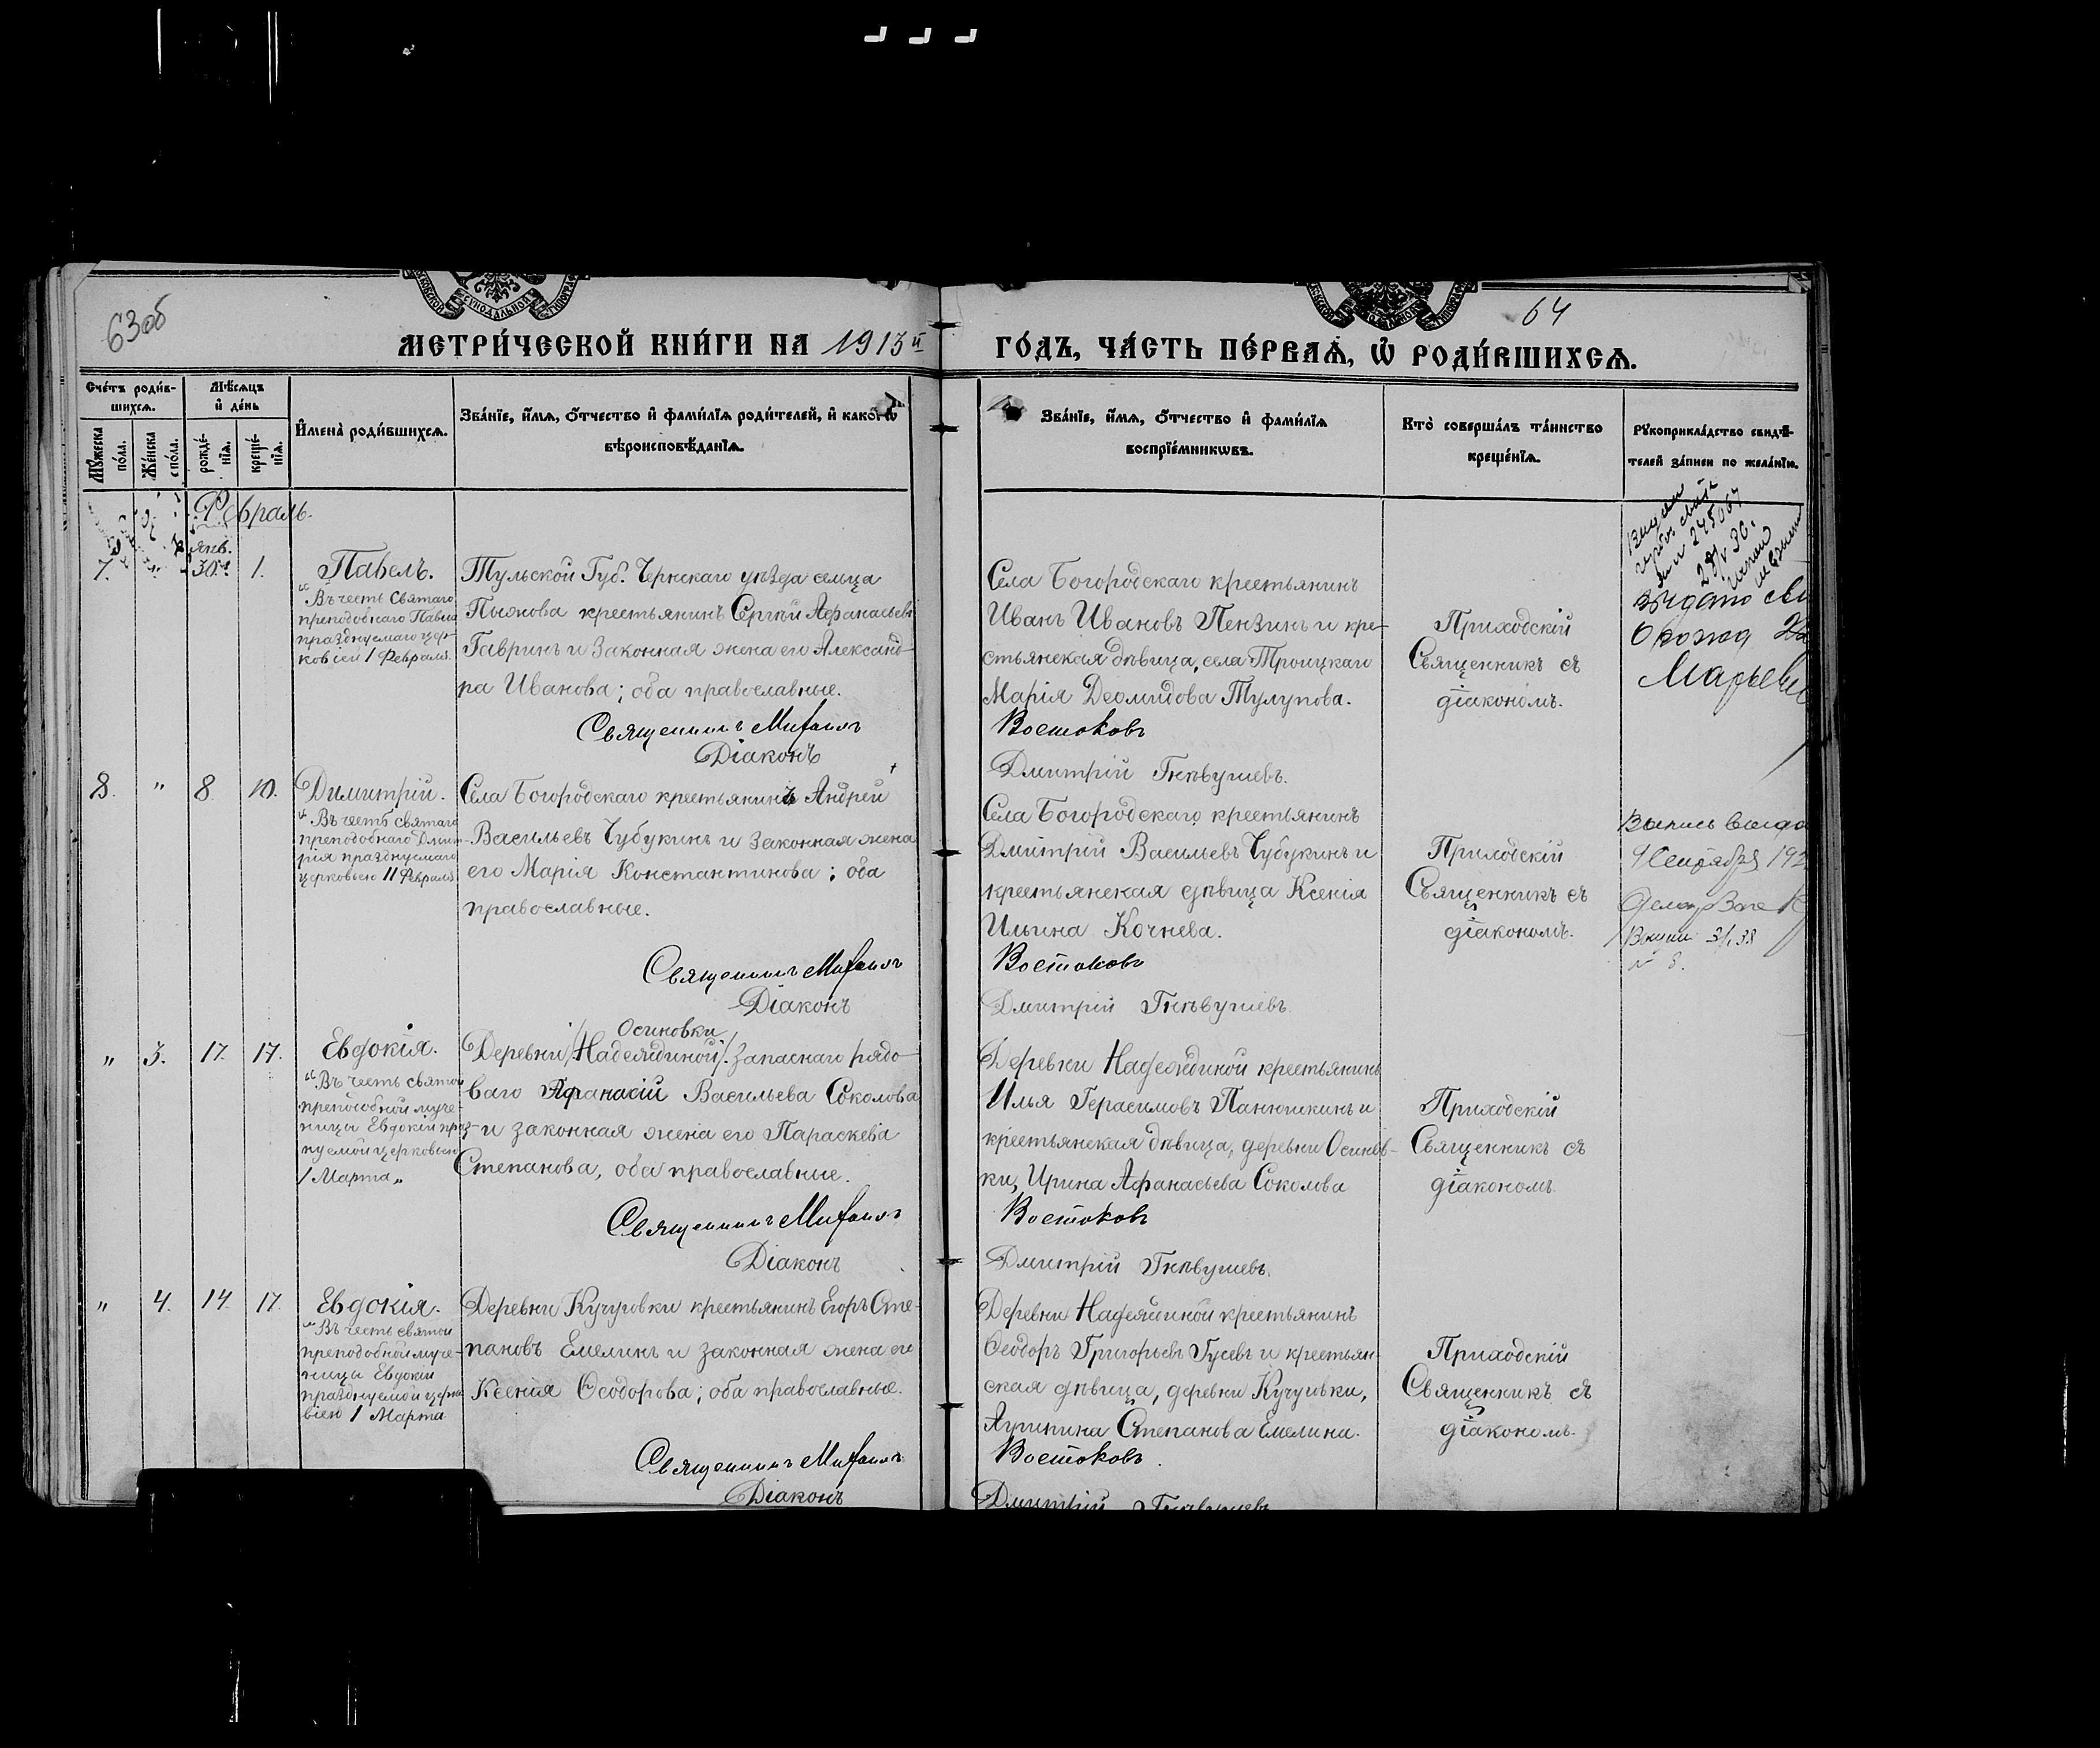 63об
64
МЕТРИ́ЧЕСКОЙ КНИ́ГИ НА 1913й ГО́ДЪ, ЧА́СТЬ ПЕ́РВАѦ, Ѽ РОДИ́ВШИХСѦ.
Сче́тъ роди́в-
шихсѧ.
Мѣ́сѧцъ
и҆ де́нь
Мꙋ́жеска
по́ла.
Же́нска
пола.
рожде́-
нїѧ.
креще́-
нїѧ.
И҆мена̀ роди́вшихсѧ.
Зва́нїе, и҆́мѧ, ѻ҆́тчество и҆ фами́лїѧ роди́телей, и҆ како́гѡ
вѣроисповѣ́данїѧ.
Зва́нїе, и҆́мѧ, ѻ҆́тчество и҆ фами́лїѧ
воспрїе́мникѡвъ.
Кто̀ соверша́лъ та́инство
креще́нїѧ.
Рꙋкоприкла́дство свидѣ́-
телей за́писи по жела́нїю.
Февраль.
7. " янв. 30. 1. Павелъ.
"Въ честь Святаго
преподобнаго Павла
празднуемаго цер-
ковіей 1 Февраля.
Тульской Губ. Чернскаго уѣзда сельца
Пьянова крестьянинъ Сергѣй Афанасьевъ
Гавринъ и Законная жена его Александ-
ра Иванова; оба православные.
Священникъ Михаилъ
Діаконъ
Села Богородскаго крестьянинъ
Иванъ Ивановъ Пензинъ и кре-
стьянская дѣвица, села Троицкаго
Марія Деомидова Тулупова.
Востоковъ
Дмитрій Гнѣвушевъ.
Приходскій
Священникъ съ
діакономъ.
245067
30.
Выдано
8. " 8 10. Димитрій.
"Въ честь святаго
преподобнаго Дмит-
рія празднуемаго
церковью 11 Февраля.
Села Богородскаго крестьянинъ Андрей
Васильевъ Чубукинъ и Законная жена
его Марія Константинова; оба
православные.
Священникъ Михаилъ
Діаконъ
Села Богородскаго крестьянинъ
Дмитрій Васильевъ Чубукинъ и
крестьянская дѣвица Ксенія
Ильина Кочнева.
Востоковъ
Дмитрій Гнѣвушевъ
Приходскій
Священникъ съ
діакономъ.
Выпись выда
4 Сентября 192
" 3. 17. 17. Евдокія.
"Въ честь святой
преподобной муче-
ницы Евдокіи праз-
нуемой церковью
1 Марта"
Осиновки
Деревни /Надеждиной/. Запаснаго рядо-
ваго Афанасій Васильева Соколова
и законная жена его Параскева
Степанова, оба православные.
Священникъ Михаилъ
Діаконъ
Деревни Надеждиной крестьянинъ
Илья Герасимовъ Панюшкинъ и
крестьянская дѣвица, деревни Осинов-
ки, Ирина Афанасьева Соколова
Востоковъ
Дмитрій Гнѣвушевъ.
Приходскій
Священникъ съ
діакономъ.
" 4. 14. 17. Евдокія.
"Въ честь святой
преподобной муче-
ницы Евдокіи
празднуемой церко
віею 1 Марта
Деревни Кучуровки крестьянинъ Егоръ Сте-
пановъ Емелинъ и законная жена его
Ксенія Ѳеодорова; оба православные.
Священникъ Михаилъ
Діаконъ
Деревни Надеждиной крестьянинъ
Ѳеодоръ Григорьевъ Гусевъ и крестьян-
ская дѣвица, деревни
Агрипина Степанова Емелина.
Востоковъ.
Дмитрій Гнѣвушевъ
Приходскій
Священникъ съ
діакономъ.